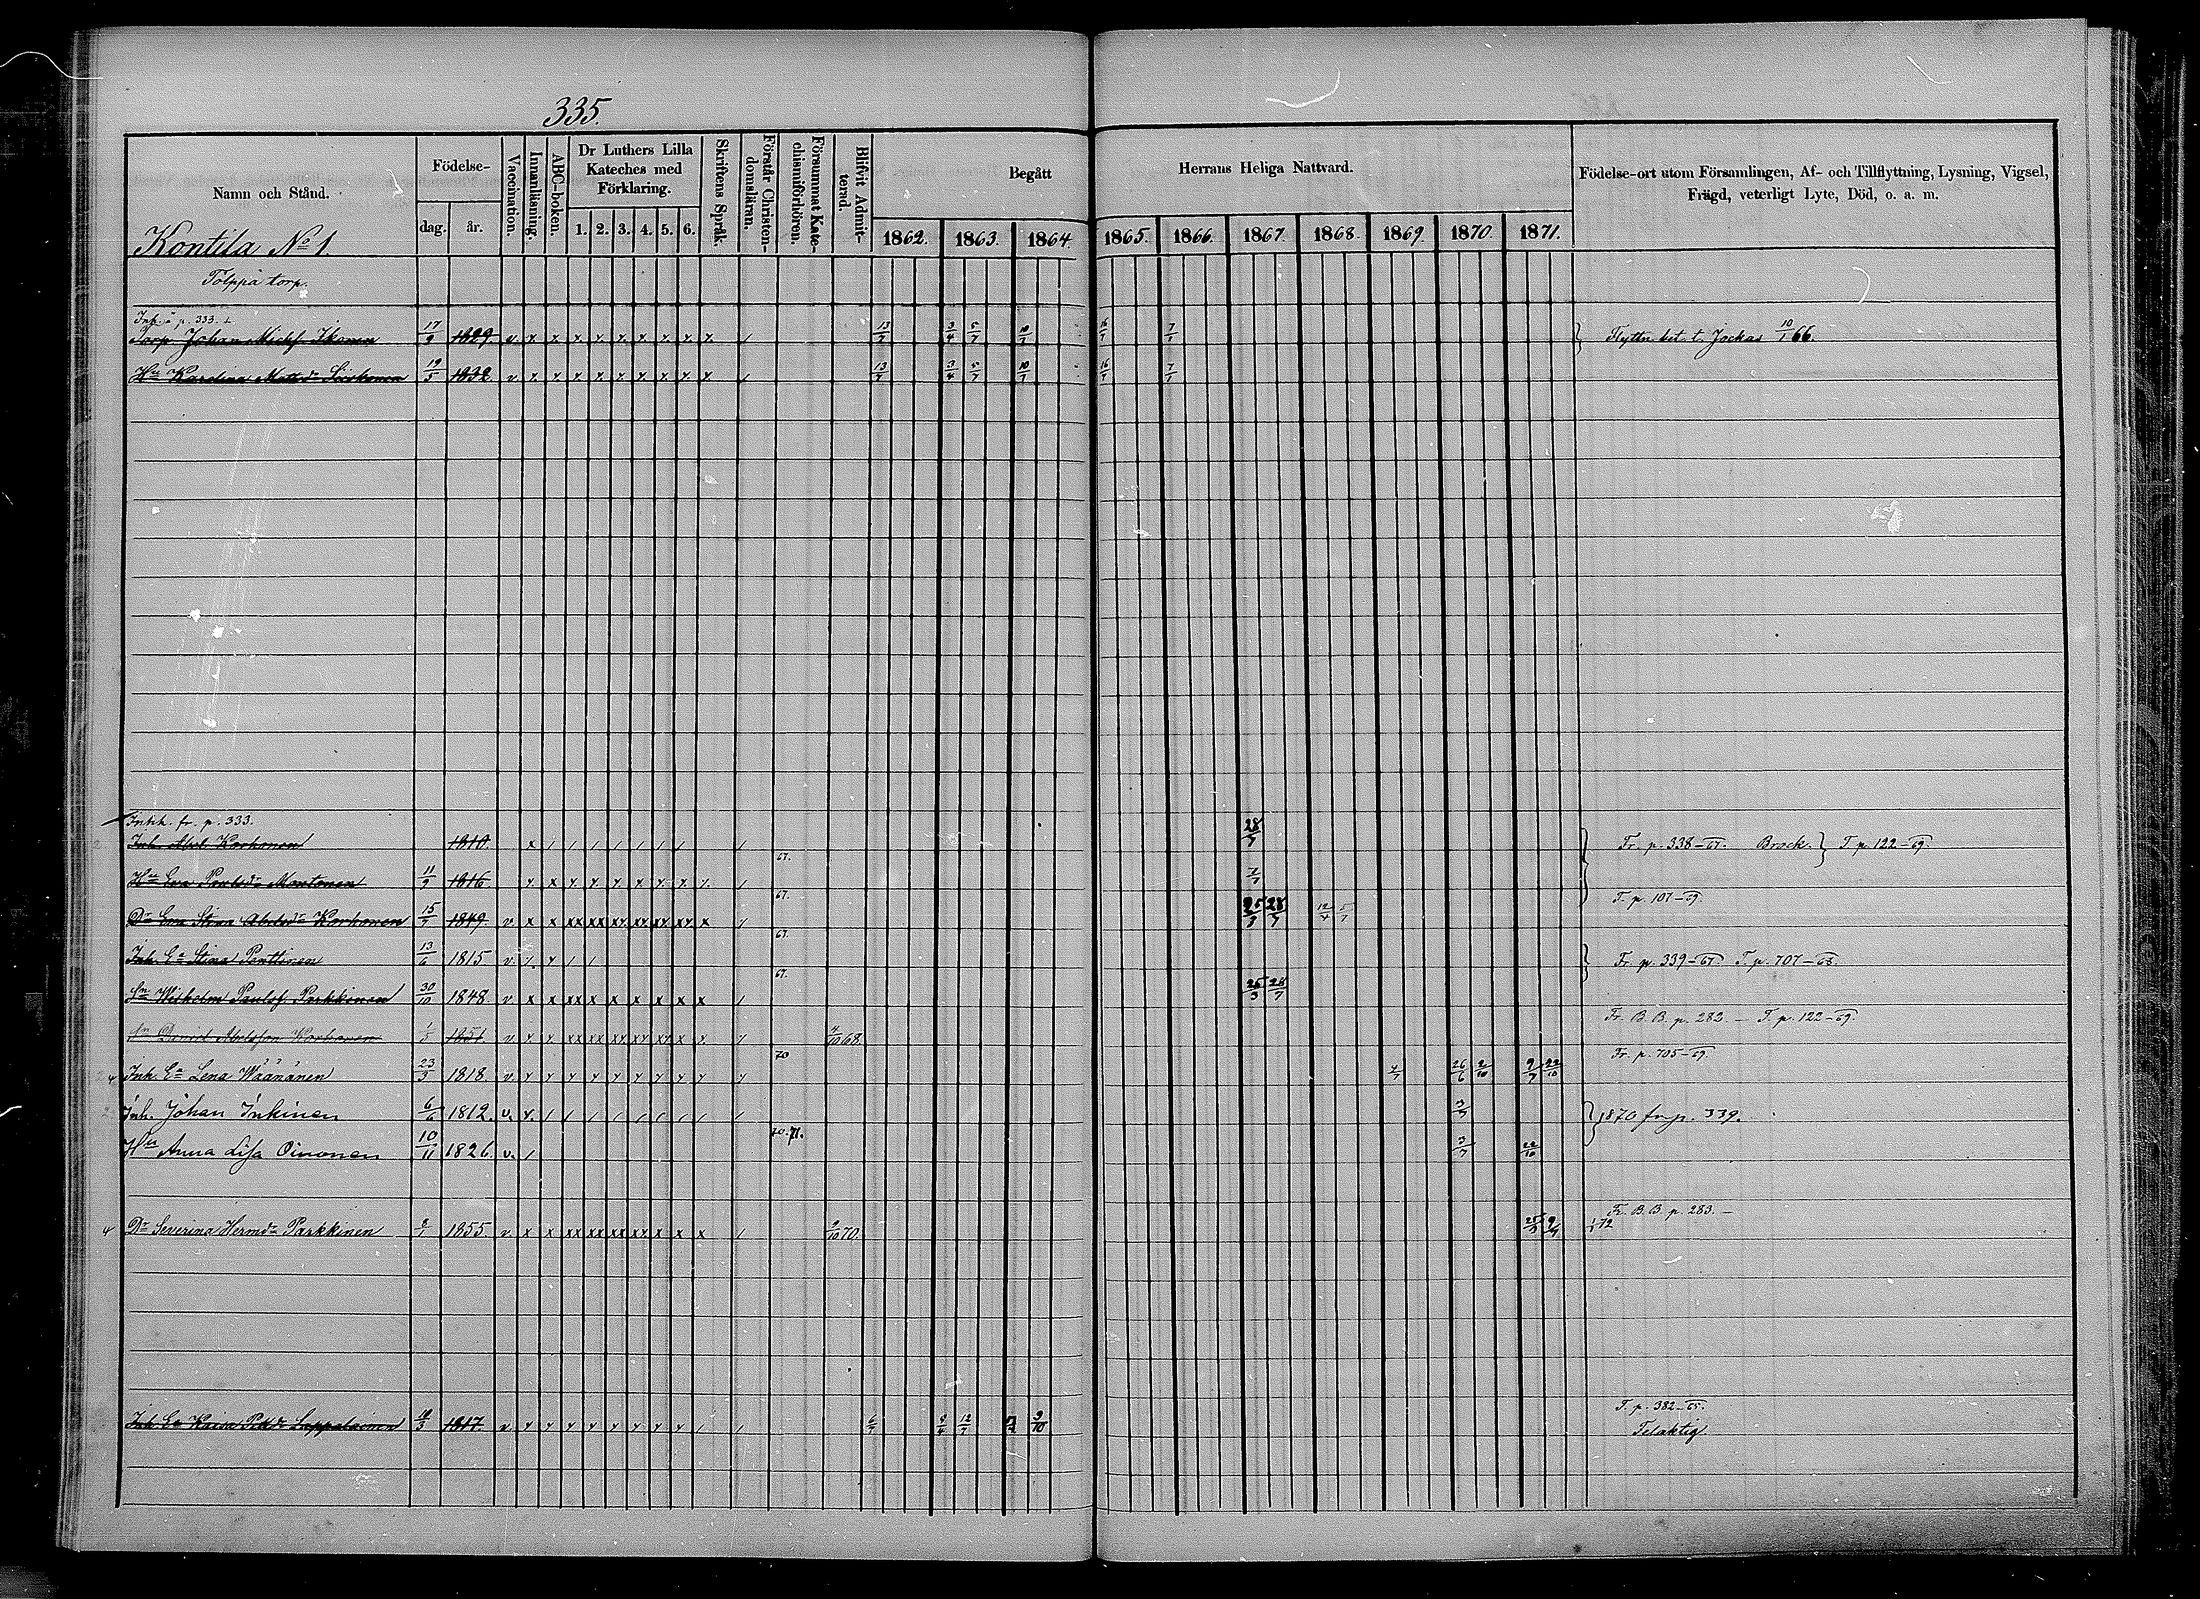 335.
Namn och Stånd.
Födelse-
dag. år.
Vaccination.
Innanläsning.
ABC-boken.
Dr Luthers Lilla Kateches med Förklaring.
1. 2. 3. 4. 5. 6.
Skriftens Språk.
Förstår Christendomsläran.
Försummat Katechismiförhören.
Blifvit Admitterad.
Begått Herrans Heliga Nattvard.
1862. 1863. 1864. 1865. 1866. 1867. 1868. 1869. 1870. 1871.
Födelse-ort utom Församlingen, Af- och Tillflyttning, Lysning, Vigsel, Frägd, veterligt Lyte, Död, o. a. m.
Kontila No 1.
Tolppa torp.
Inh. å p. 333.
Torp. Johan Michs. Ikonen 17/9 1829. v. 13/7 3/4 5/7 10/7 16/7 7/1 Flyttn. bet. t. Jockas 10/1 66.
Hu Karolina Matts dr 19/5 1832. v. 13/7 3/4 5/7 10/7 16/7 7/1
Inh. fr. p. 333.
Inh. Abel Korhonen 1810. 28/7 Fr. p. 338-67. Brock. } T. p. 122-69.
67.
Hu Eva Paulsdr Montonen 11/9 1816. 7/7
67.
T. p. 107-69.
Dr Eva Stina Abelsdr Korhonen 15/7 1849. v. 25/3 28/7 12/4 5/7
67.
Inh. Ea Stina Penttinen 13/6 1815 v. Fr. p. 339-67. T. p. 707-68.
67.
Sn Wilhelm Paulss. Parkkinen 30/10 1848. v. 25/3 28/7
Fr. B. B. p. 282. - T. p. 122-69.
Sn David Abelsson Korhonen 1/5 1851 v. 4/10 68.
70
Fr. p. 705-69.
Inh. Ea Lena Wäänänen 23/3 1818. v. 4/7 26/6 2/10 9/7 22/10
Inh. Johan Inkinen 6/6 1812. v. 3/7 } 1870 fr. p. 339.
70. 71.
Hu Anna Lisa Oinonen 10/11 1826. v. 3/7 22/10
Fr. B. B. p. 283. -
Dr Severina Hermsdr Parkkinen 8/1 1855 v. 9/10 70. 25/3 9/7 1/1 72
T. p. 382-65.
Inh. Ea Kaisa Lappalainen 18/3 1817. v. 6/7 8/4 12/7 9/10
Felaktig